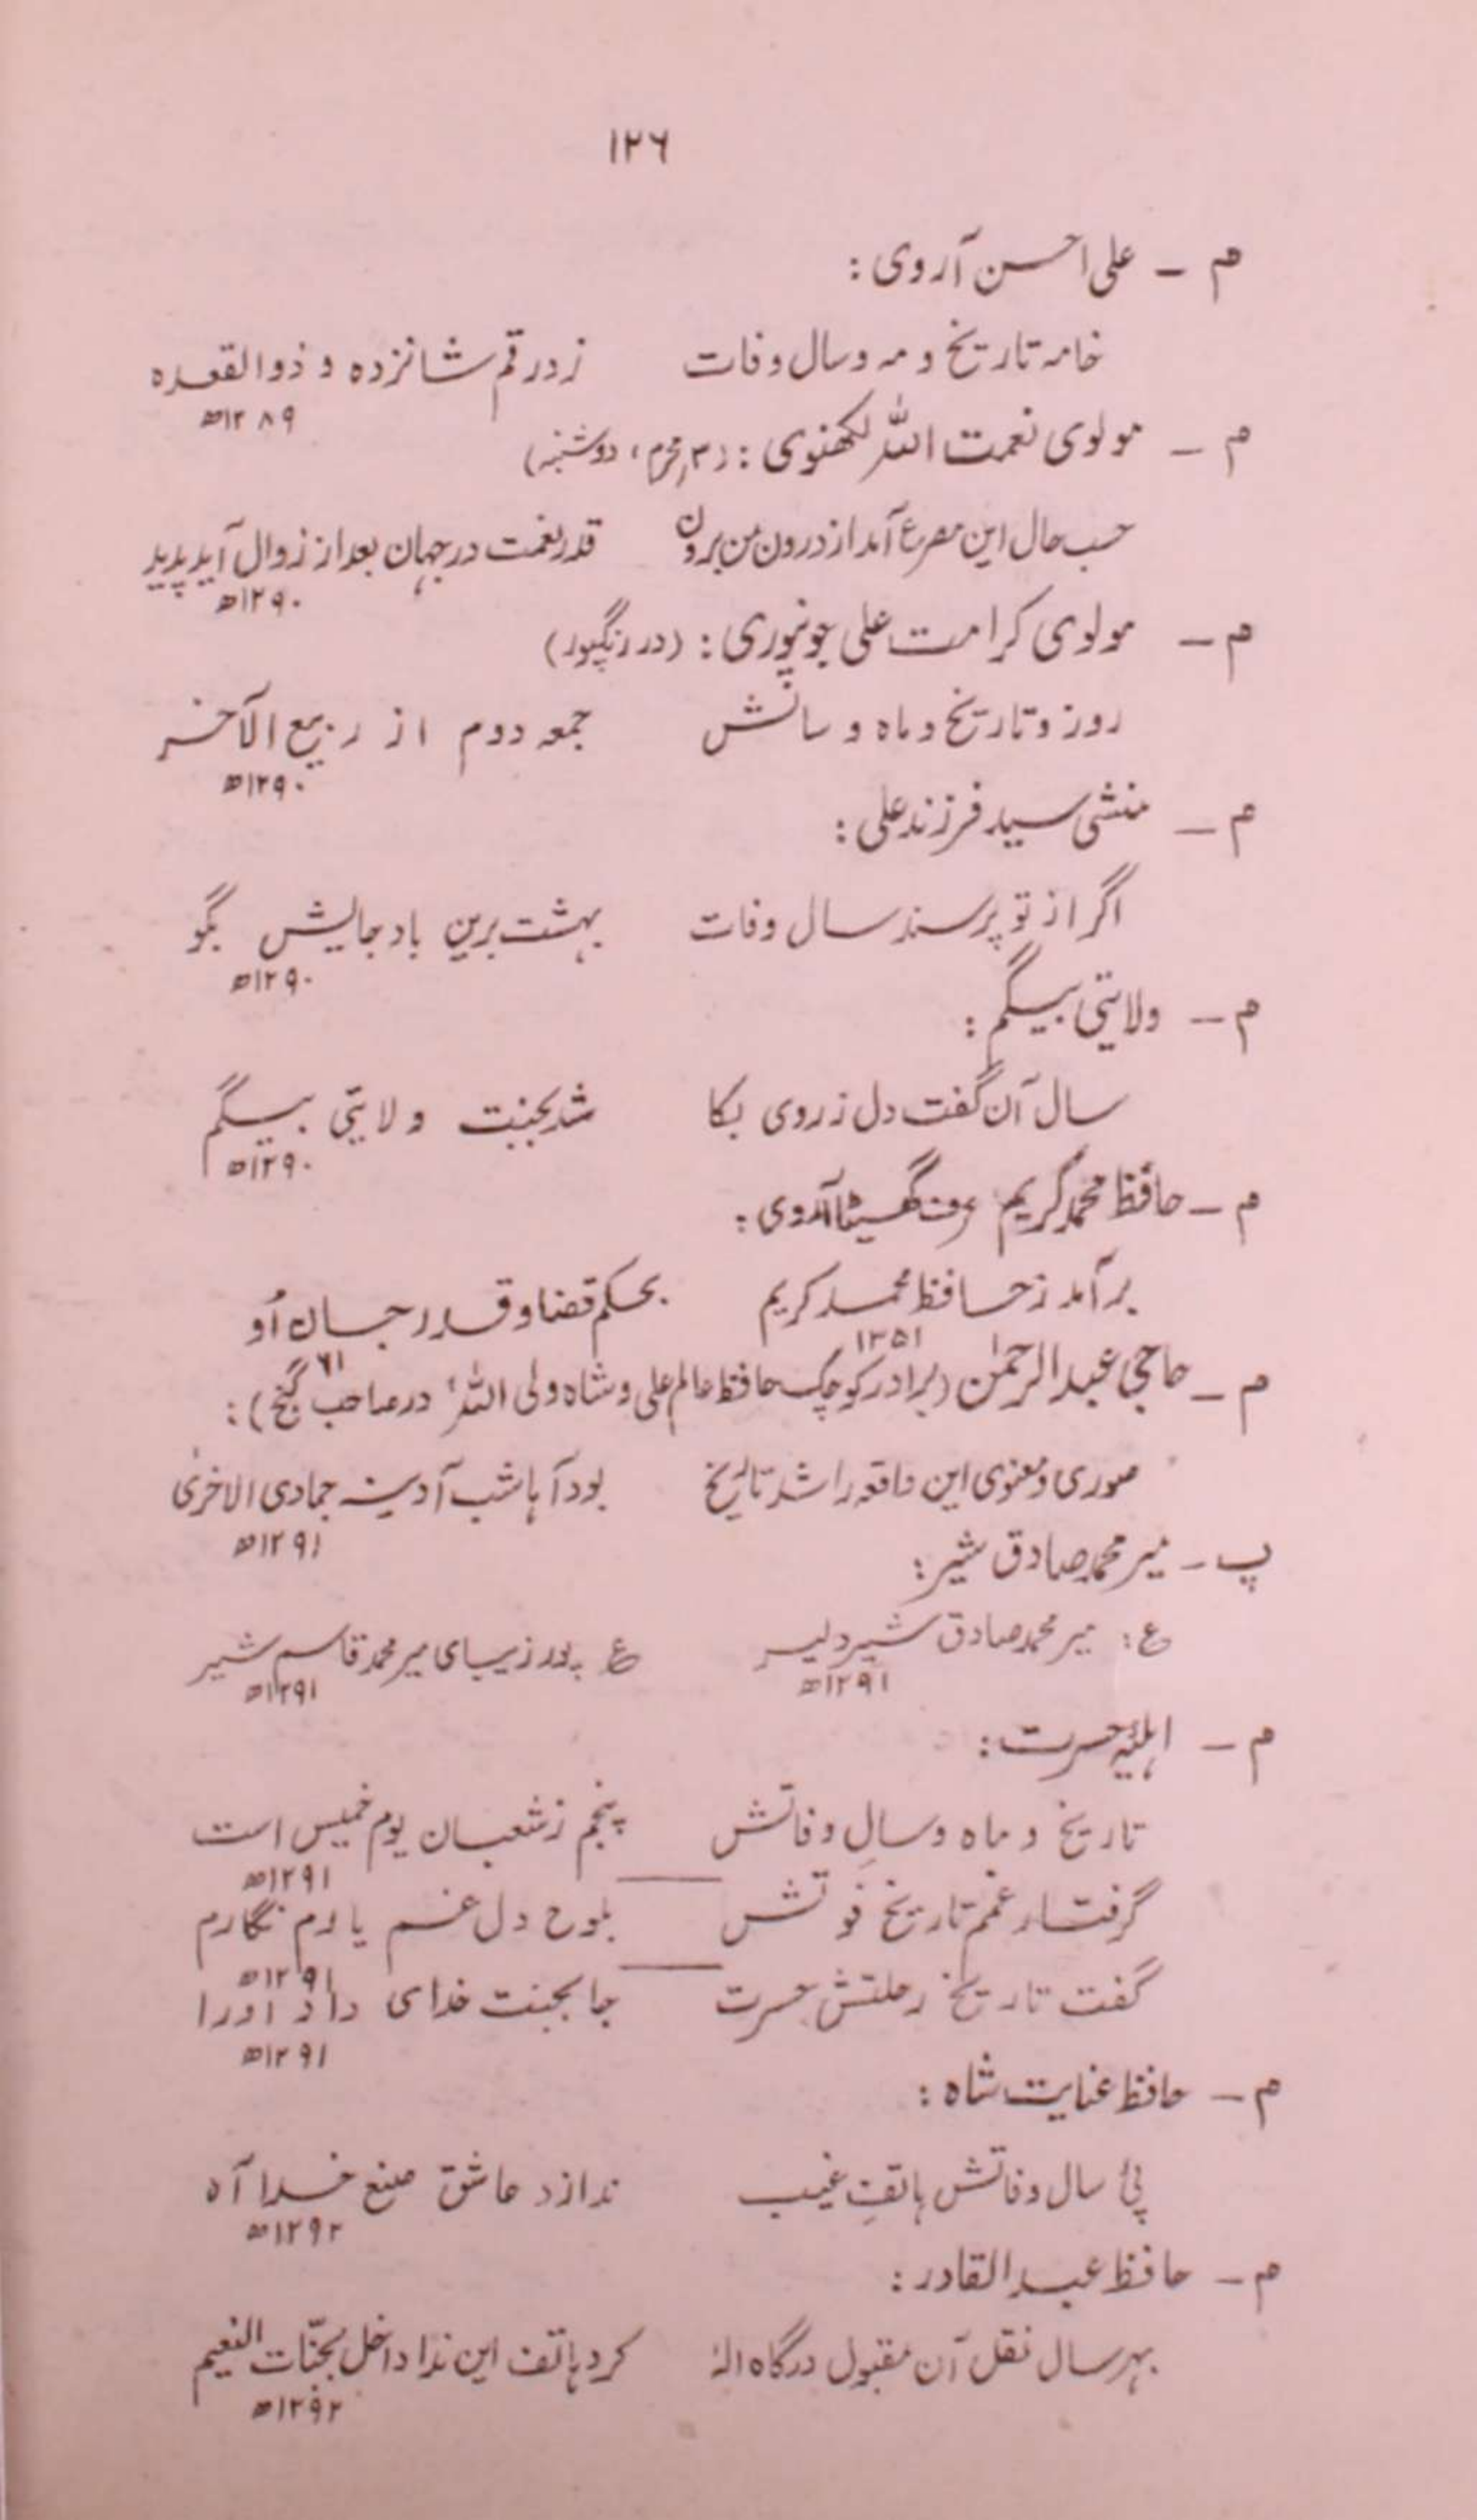 ۱۲۶
م ـ علی احسن آروی :
خامہ تاریخ و مہ و سال وفات    زد رقم شانزدہ و ذوالقعدہ
۱۲۸۹ھ
م ـ مولوی نعمت اللہ لکھنوی : (۳ محرم، دوشنبہ)
حسب حال این مصرع آمد از درون من برون    قدر نعمت در جہان بعد از زوال آید پدید
۱۲۹۰ھ
م ـ مولوی کرامت علی جونپوری : (در رنگپور)
روز و تاریخ و ماہ و سالش    جمعہ دوم از ربیع الآخر
۱۲۹۰ھ
م ـ منشی سید فرزند علی :
اگر از تو پرسند سال وفات    بہشت برین باد جایش بگو
۱۲۹۰ھ
م ـ ولایتی بیگم :
سال آن گفت دل ز روی بکا    شد بجنت ولایتی بیگم
۱۲۹۰ھ
م ـ حافظ محمد کریم عرف گھسیٹا آروی :
بر آمد ز حافظ محمد کریم    بحکم قضا و قدر جان اُو
۱۳۵۱    ۶۱
م ـ حاجی عبدالرحمٰن (برادر کوچک حافظ عالم علی و شاہ ولی اللہ، در صاحب گنج) :
صوری و معنوی این واقعہ را شد تاریخ    بود آہا شب آدینہ جمادی الاخریٰ
۱۲۹۱ھ
پ ـ میر محمد صادق شیر :
ع : میر محمد صادق شیر دلیر    ع پور زیبای میر محمد قاسم شیر
۱۲۹۱ھ    ۱۲۹۱ھ
م ـ اہلیۂ حسرت :
تاریخ و ماہ و سالِ وفاتش    پنجم ز شعبان یوم خمیس است
۱۲۹۱ھ
گرفتار غم تاریخ فوتش    بلوح دل غم یارم نگارم
۱۲۹۱ھ
گفت تاریخ رحلتش حسرت    جا بجنت خدای داد اورا
۱۲۹۱ھ
م ـ حافظ عنایت شاہ :
پئ سال وفاتش ہاتفِ غیب    ندا زد عاشق صنع خدا آہ
۱۲۹۲ھ
م ـ حافظ عبدالقادر :
بہر سال نقل آن مقبول درگاہ الہٰ    کرد ہاتف این ندا داخل بجنّات النعیم
۱۲۹۲ھ